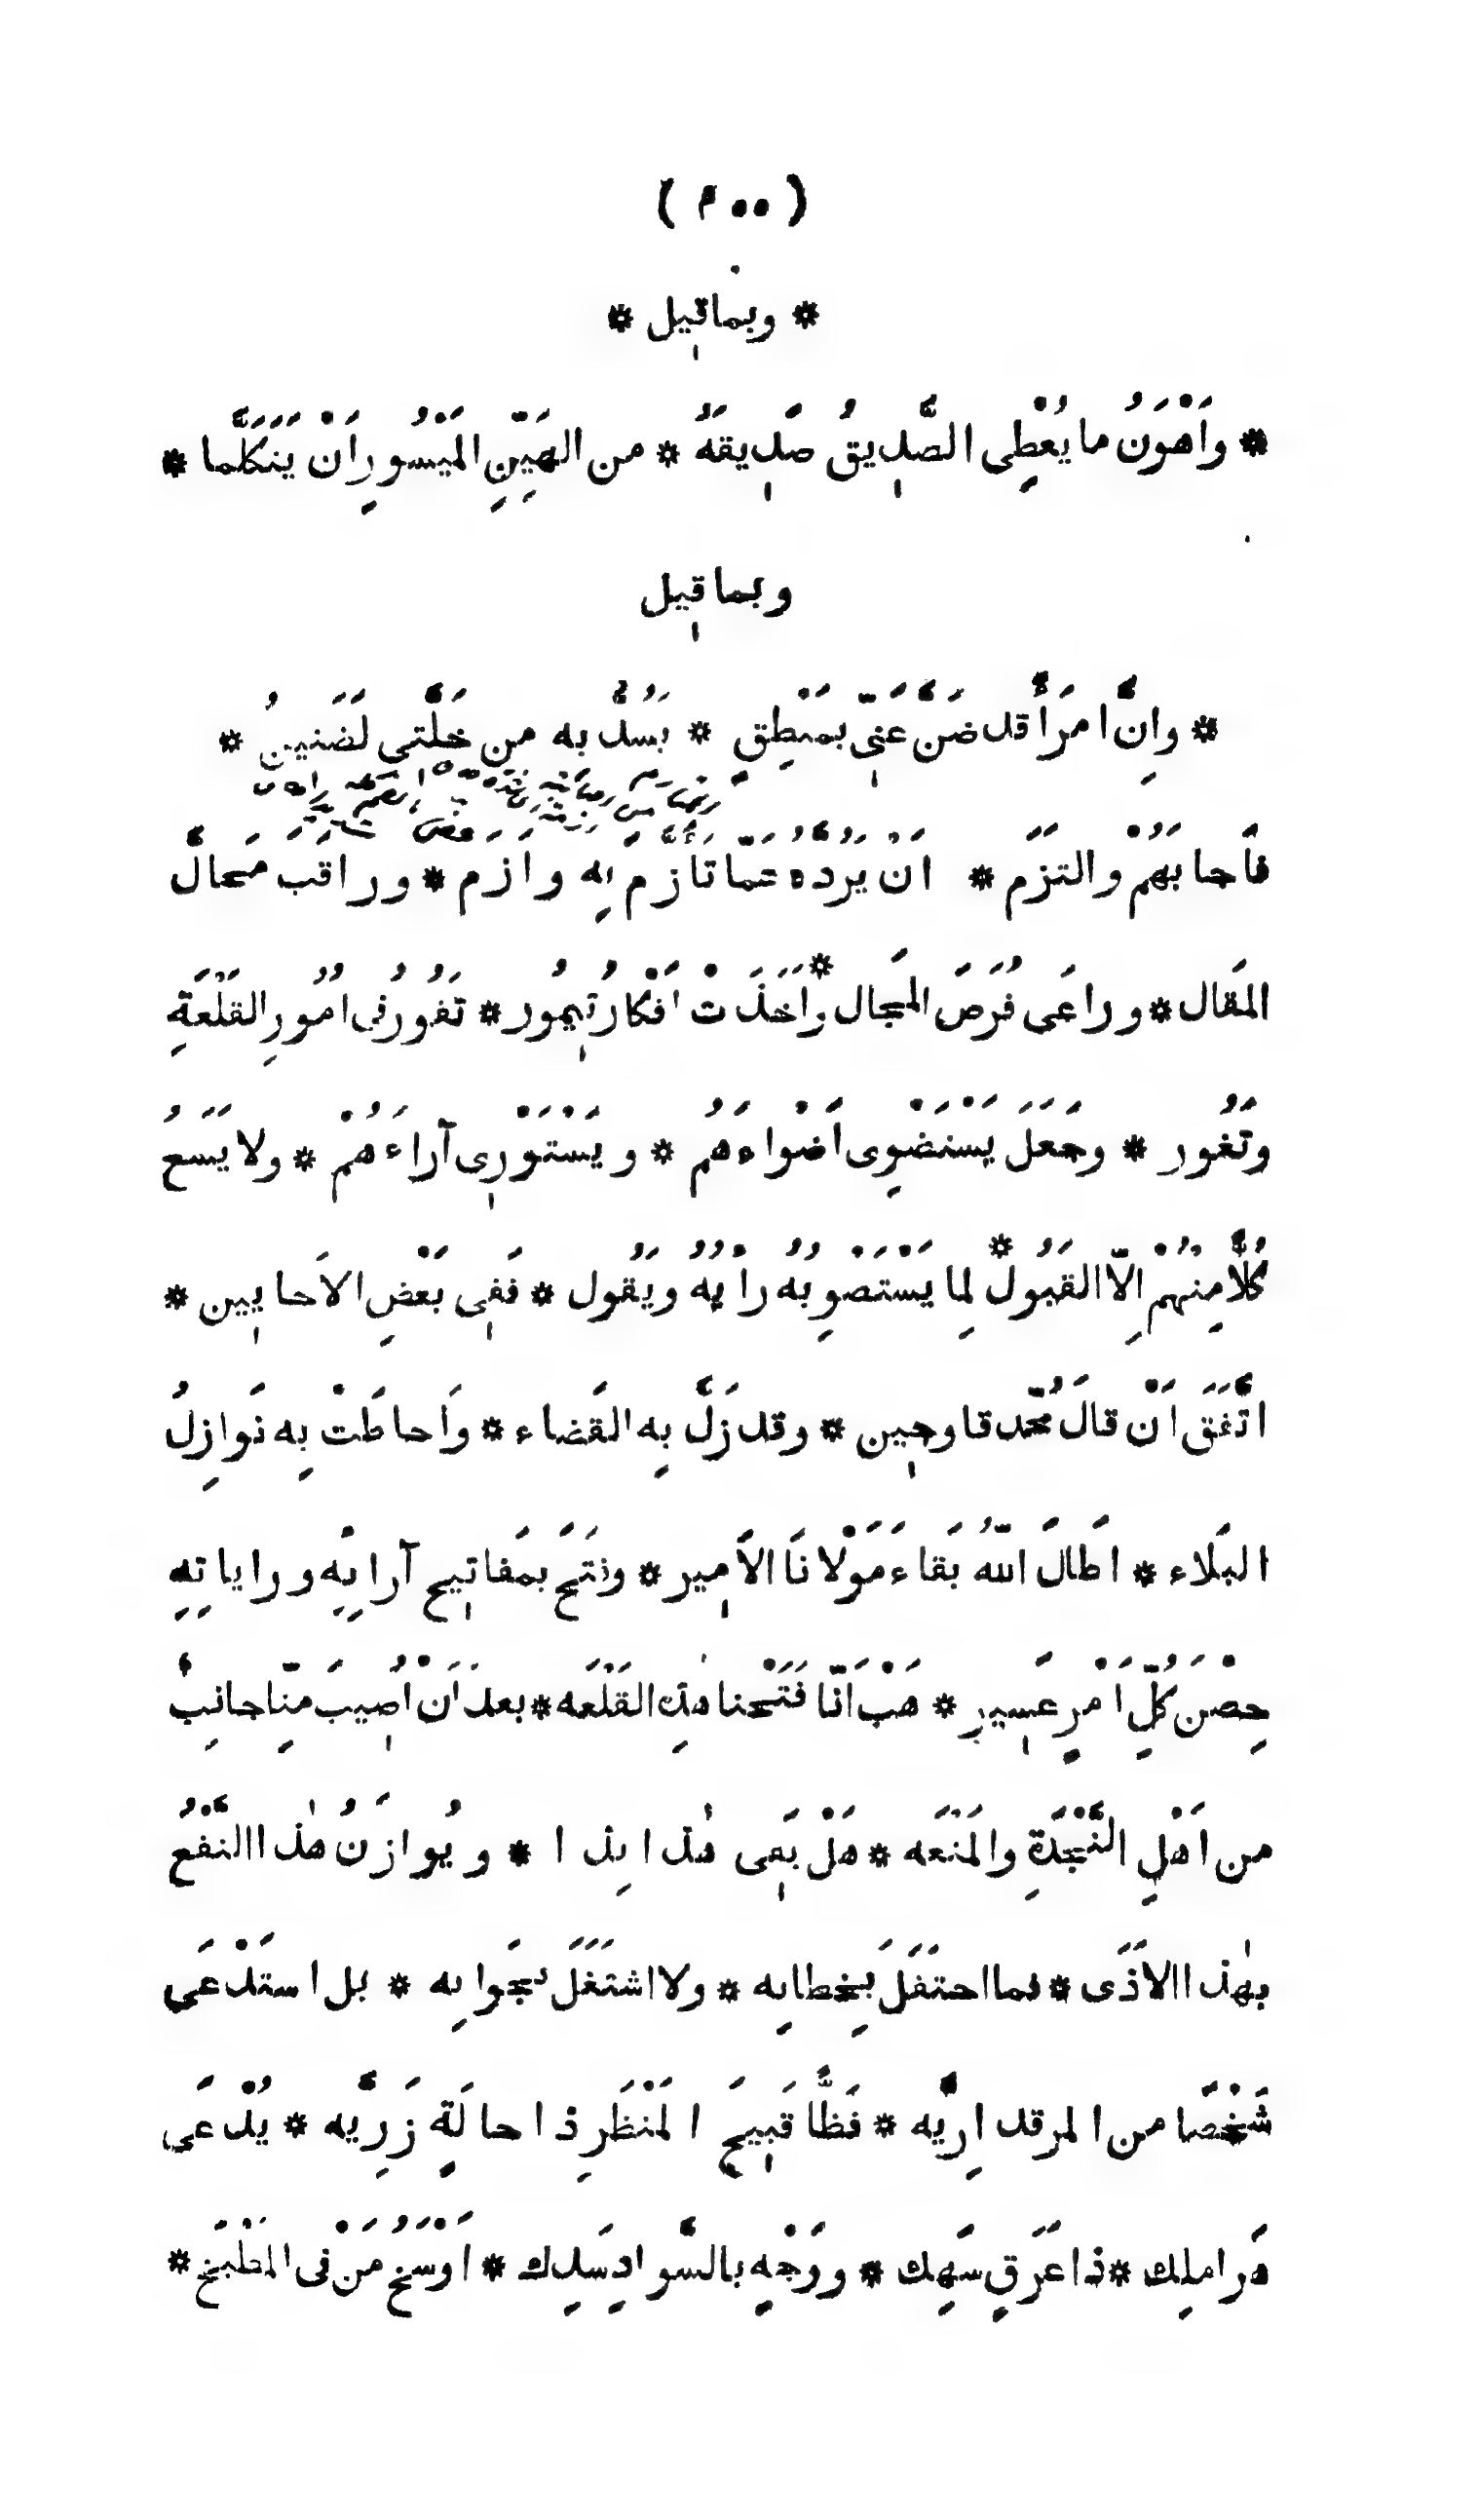 ( ٢٠٠ )
* وبما قيل *
* وَاَهْوَنُ ما يُعْطِى الصَّدِيقُ صَدِيقَهُ * من الهَيِّنِ المَيْسُورِ اَنْ يَتَكَلَّما *
وبما قيل
* واِنَّ امرَأً قد ضَنَّ عَنِّى بمَنْطِقٍ * يَسُدُّ به من خَلَّتى لَضَنينُ *
فاَجابَهُمْ والتَزَم * اَنْ يَرُدَّهُ عَمّا تَأَزَّم بِه واَزَم * وراقَبَ مَحالَّ
المَقال * وراعَى فُرَصَ المَجال * واَخَذَتْ اَفْكارُ تيمُور * تَفُورُ فى اُمُورِ القَلْعَةِ
وتَغُور * وجَعَلَ يَسْتَضْوِى اَضْواءهُم * ويَسْتَوْرِى آراءَهُمْ * ولا يَسَعُ
كُلًّا مِنْهُمْ اِلّا القَبُول * لِما يَسْتَصْوِبُهُ رَأْيُهُ ويَقُول * فَفِى بَعْضِ الاَحايِين *
اتَّفَقَ اَنْ قالَ مُحَمَّد قاوجين * وقد زَلَّ بِه القَضاء * واَحاطَتْ بِه نَوازِلُ
البَلاء * اَطالَ اللّهُ بَقاءَ مَوْلانَا الاَمِير * وفَتَحَ بمَفاتِيح آرائِه وراياتِه
حِصْنَ كُلِّ اَمْرٍ عَسِير * هَبْ اَنّا فَتَحْنا هٰذِه القَلْعَه * بعدَ اَنْ اُصِيبَ مِنّا جانِبٌ
من اَهْلِ النَّجْدَةِ والمَنَعَه * هَلْ يَفِى هٰذا بِذا * ويُوازَنُ هٰذا النَّفْعُ
بهٰذا الاَذَى * فما احتَفَلَ بِخِطابِه * ولا اشتَغَلَ بجَوابِه * بل استَدْعَى
شَخْصًا من المرقداريّه * فَظًّا قَبِيحَ المَنْظَرِ ذا حالَةٍ زَرِيَّه * يُدْعَى
هَراملك * ذا عَرَقٍ سَهِك * ووَجْهٍ بالسَّوادِ سَدِك * اَوْسَخُ مَنْ فى المَطْبَخ *